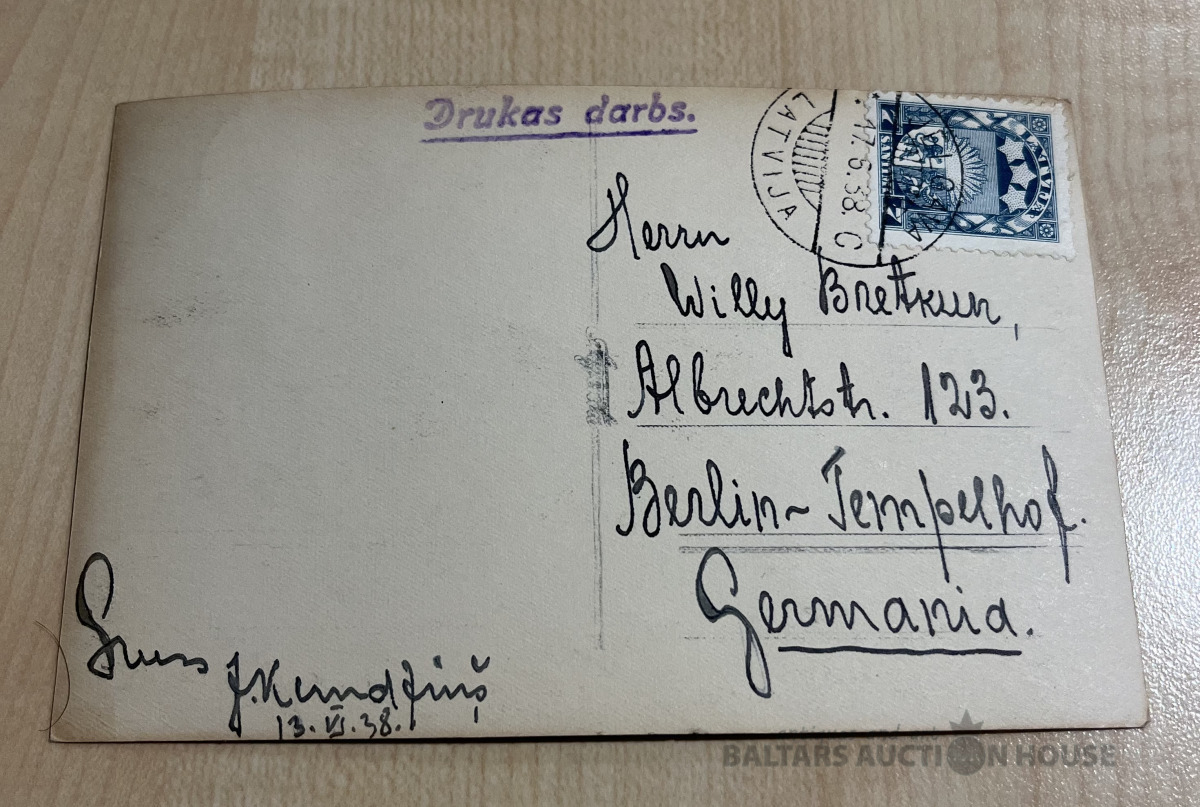 Drukas darbs.
LATVIJA
17.6.38. C
LATVIJA
Herrn
Willy Brettkun,
Albrechtstr. 123.
Berlin-Tempelhof.
Germania.
Gruss
13.VI.38.
BALTARS AUCTION HOUSE